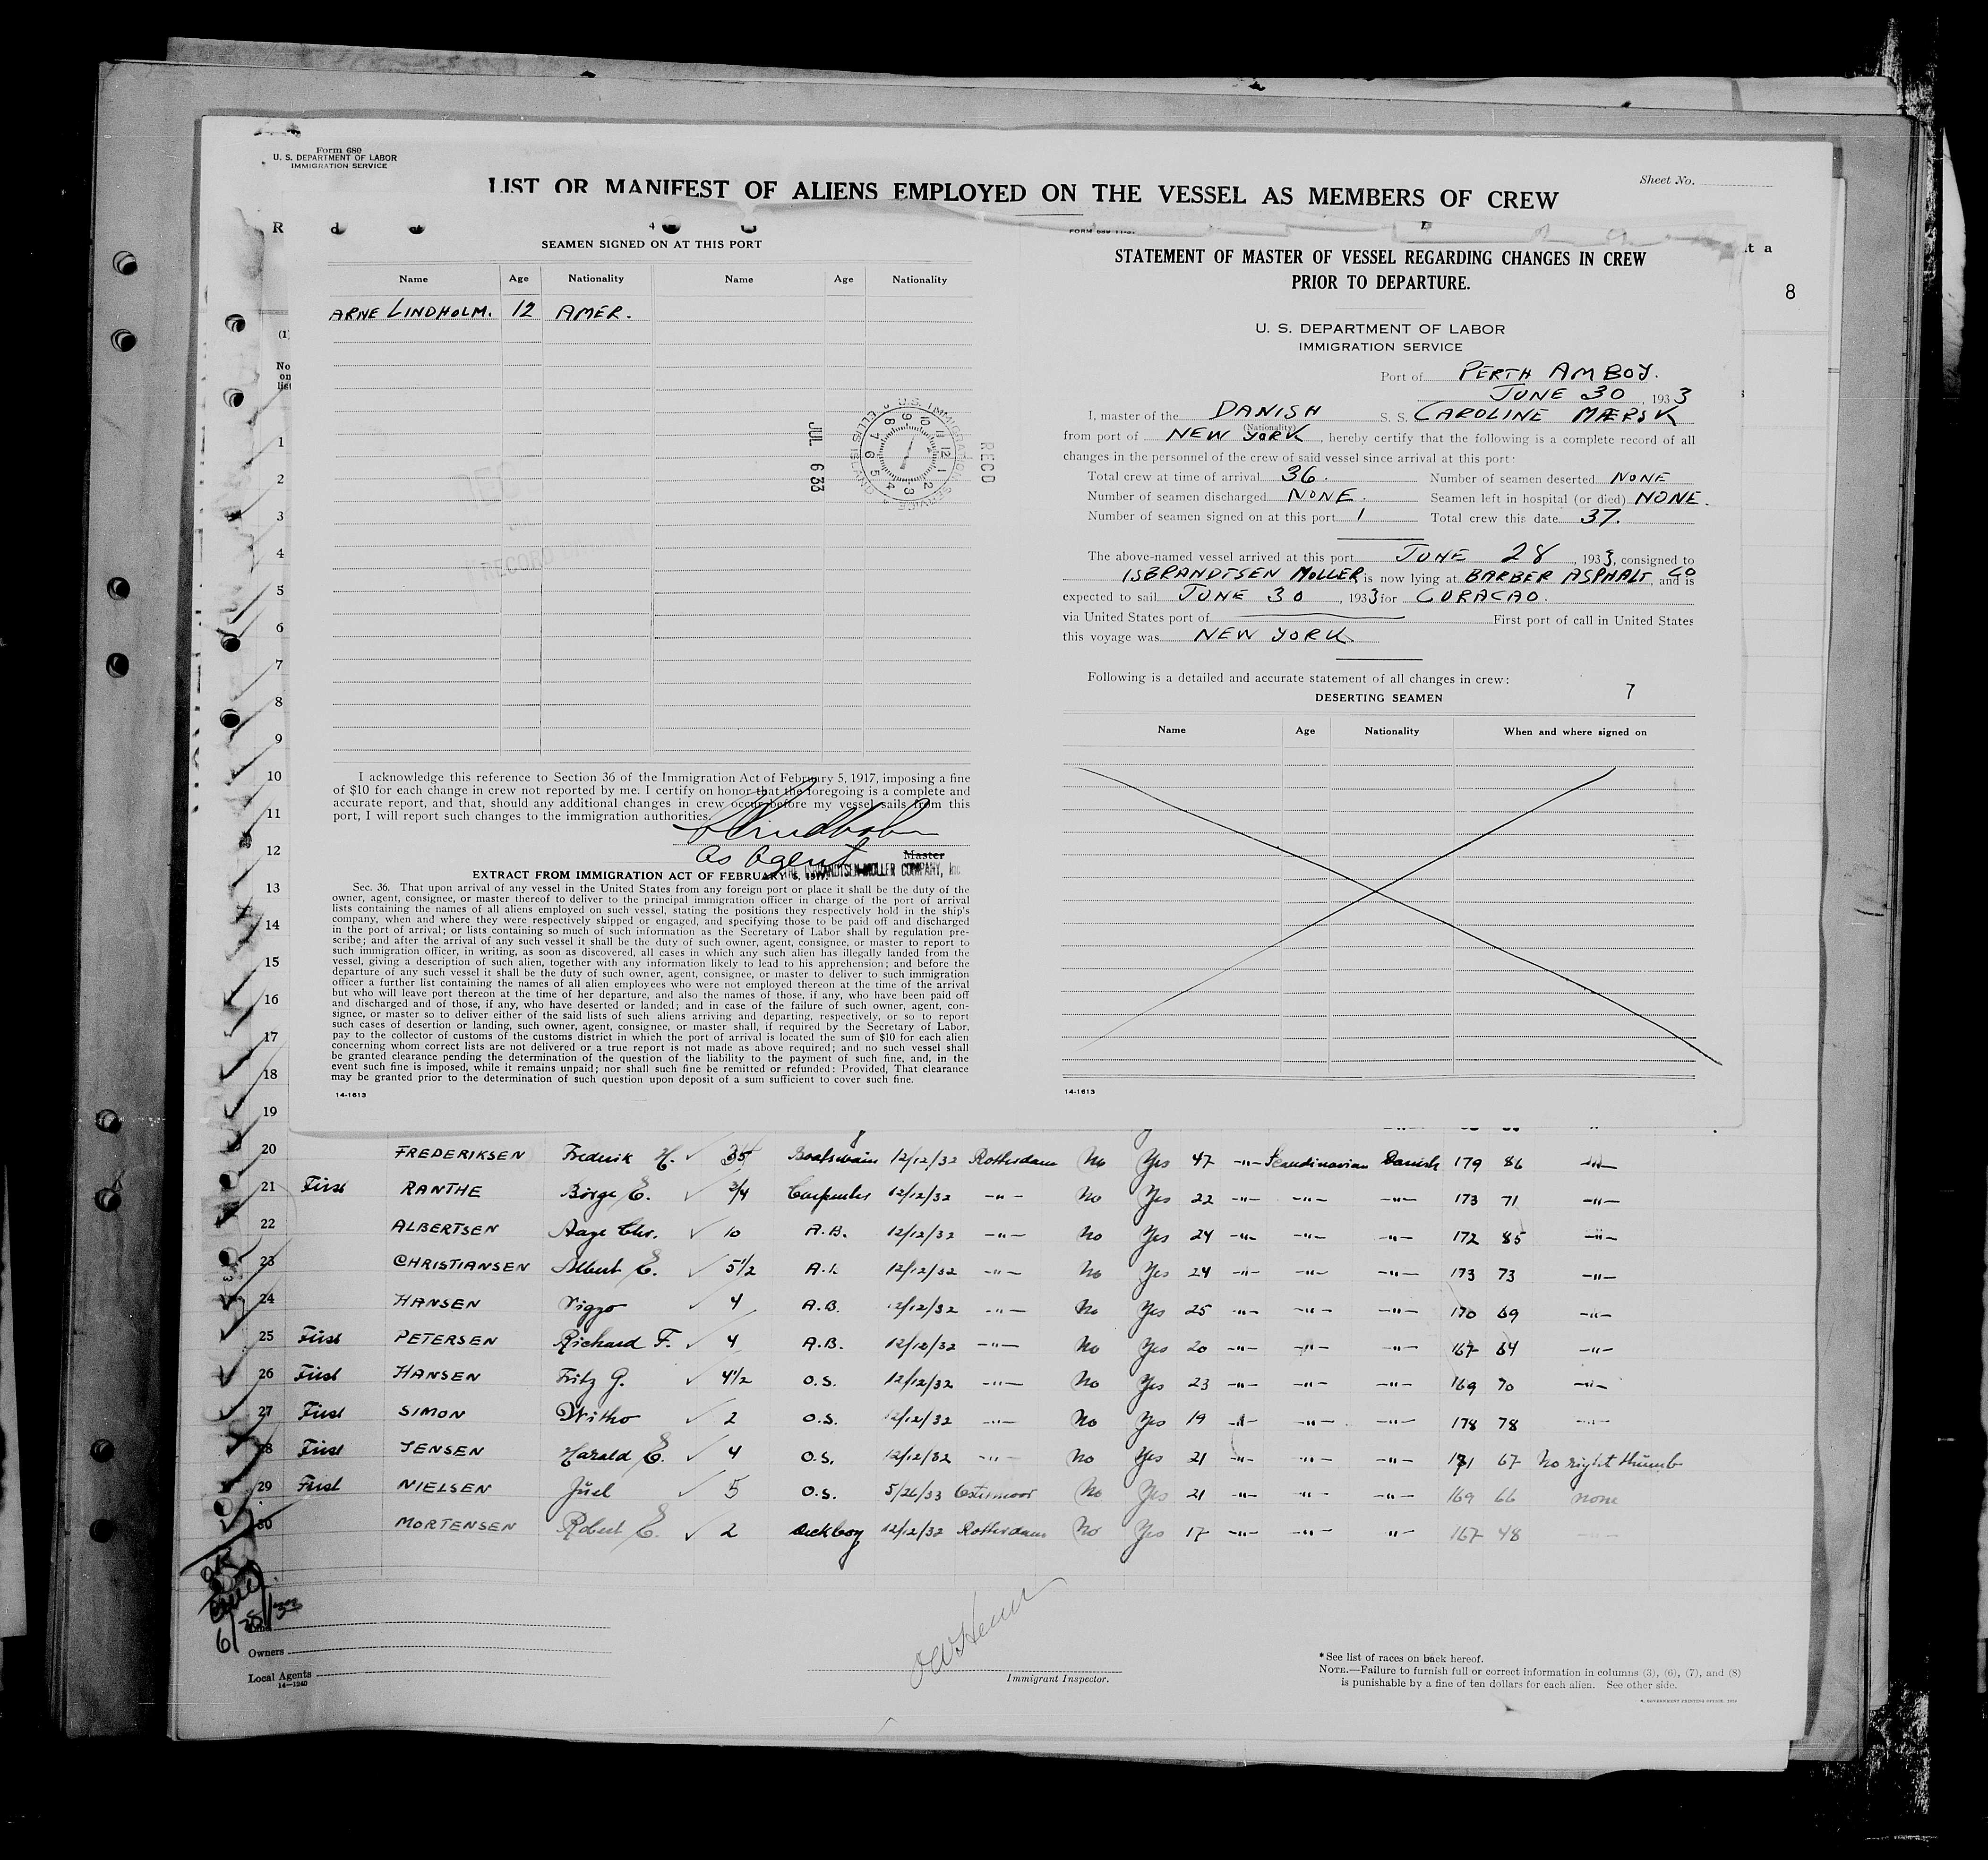 Form 680
U. S. DEPARTMENT OF LABOR
IMMIGRATION SERVICE
Sheet No.
LIST OR MANIFEST OF ALIENS EMPLOYED ON THE VESSEL AS MEMBERS OF CREW
8
SEAMEN SIGNED ON AT THIS PORT
Name Age Nationality Name Age Nationality
ARNE LINDHOLM. 12 AMER.
U.S. IMMIGRATION SERVICE ELLIS ISLAND
JUL 6 33
RECD
I acknowledge this reference to Section 36 of the Immigration Act of February 5, 1917, imposing a fine
of $10 for each change in crew not reported by me. I certify on honor that the foregoing is a complete and
accurate report, and that, should any additional changes in crew occur before my vessel sails from this
port, I will report such changes to the immigration authorities.
as Agent Master
ISBRANDTSEN-MOLLER COMPANY, Inc
EXTRACT FROM IMMIGRATION ACT OF FEBRUARY 5, 1917.
Sec. 36. That upon arrival of any vessel in the United States from any foreign port or place it shall be the duty of the
owner, agent, consignee, or master thereof to deliver to the principal immigration officer in charge of the port of arrival
lists containing the names of all aliens employed on such vessel, stating the positions they respectively hold in the ship's
company, when and where they were respectively shipped or engaged, and specifying those to be paid off and discharged
in the port of arrival; or lists containing so much of such information as the Secretary of Labor shall by regulation pre-
scribe; and after the arrival of any such vessel it shall be the duty of such owner, agent, consignee, or master to report to
such immigration officer, in writing, as soon as discovered, all cases in which any such alien has illegally landed from the
vessel, giving a description of such alien, together with any information likely to lead to his apprehension; and before the
departure of any such vessel it shall be the duty of such owner, agent, consignee, or master to deliver to such immigration
officer a further list containing the names of all alien employees who were not employed thereon at the time of the arrival
but who will leave port thereon at the time of her departure, and also the names of those, if any, who have been paid off
and discharged and of those, if any, who have deserted or landed; and in case of the failure of such owner, agent, con-
signee, or master so to deliver either of the said lists of such aliens arriving and departing, respectively, or so to report
such cases of desertion or landing, such owner, agent, consignee, or master shall, if required by the Secretary of Labor,
pay to the collector of customs of the customs district in which the port of arrival is located the sum of $10 for each alien
concerning whom correct lists are not delivered or a true report is not made as above required; and no such vessel shall
be granted clearance pending the determination of the question of the liability to the payment of such fine, and, in the
event such fine is imposed, while it remains unpaid; nor shall such fine be remitted or refunded: Provided, That clearance
may be granted prior to the determination of such question upon deposit of a sum sufficient to cover such fine.
14-1613
STATEMENT OF MASTER OF VESSEL REGARDING CHANGES IN CREW
PRIOR TO DEPARTURE.
U. S. DEPARTMENT OF LABOR
IMMIGRATION SERVICE
Port of PERTH AMBOY.
JUNE 30, 1933
I, master of the DANISH S. S. CAROLINE MÆRSK
(Nationality)
from port of NEW YORK, hereby certify that the following is a complete record of all
changes in the personnel of the crew of said vessel since arrival at this port:
Total crew at time of arrival 36. Number of seamen deserted NONE
Number of seamen discharged NONE. Seamen left in hospital (or died) NONE.
Number of seamen signed on at this port 1 Total crew this date 37.
The above-named vessel arrived at this port JUNE 28, 1933, consigned to
ISBRANDTSEN MOLLER is now lying at BARBER ASPHALT CO, and is
expected to sail JUNE 30, 1933 for CURACAO.
via United States port of First port of call in United States
this voyage was NEW YORK.
Following is a detailed and accurate statement of all changes in crew:
7
DESERTING SEAMEN
Name Age Nationality When and where signed on
14-1613
1
2
3
4
5
6
7
8
9
10
11
12
13
14
15
16
17
18
19
20 FREDERIKSEN Frederik H. 35 Boatswain 12/12/32 Rotterdam No Yes 47 -"- Scandinavian Danish 179 86 -"-
21 First RANTHE Börge E. 3/4 Carpenter 12/12/32 -"- No Yes 22 -"- -"- -"- 173 71 -"-
22 ALBERTSEN Aage Chr. 10 A.B. 12/12/32 -"- No Yes 24 -"- -"- -"- 172 85 -"-
23 CHRISTIANSEN Albert E. 5 1/2 A.B. 12/12/32 -"- No Yes 24 -"- -"- -"- 173 73 -"-
24 HANSEN Viggo 4 A.B. 12/12/32 -"- No Yes 25 -"- -"- -"- 170 69 -"-
25 First PETERSEN Richard F. 4 A.B. 12/12/32 -"- No Yes 20 -"- -"- -"- 167 64 -"-
26 First HANSEN Fritz G. 4 1/2 O.S. 12/12/32 -"- No Yes 23 -"- -"- -"- 169 70 -"-
27 First SIMON Witho 2 O.S. 12/12/32 -"- No Yes 19 -"- -"- -"- 178 78 -"-
28 First JENSEN Harald E. 4 O.S. 12/12/32 -"- No Yes 21 -"- -"- -"- 171 67 No right thumb
29 First NIELSEN Juel 5 O.S. 5/26/33 No Yes 21 -"- -"- -"- 169 66 none
30 MORTENSEN Robert E. 2 Deckboy 12/12/32 Rotterdam No Yes 17 -"- -"- -"- 167 48 -"-
Owners
Local Agents
14-1240
Immigrant Inspector.
*See list of races on back hereof.
NOTE.—Failure to furnish full or correct information in columns (3), (6), (7), and (8)
is punishable by a fine of ten dollars for each alien. See other side.